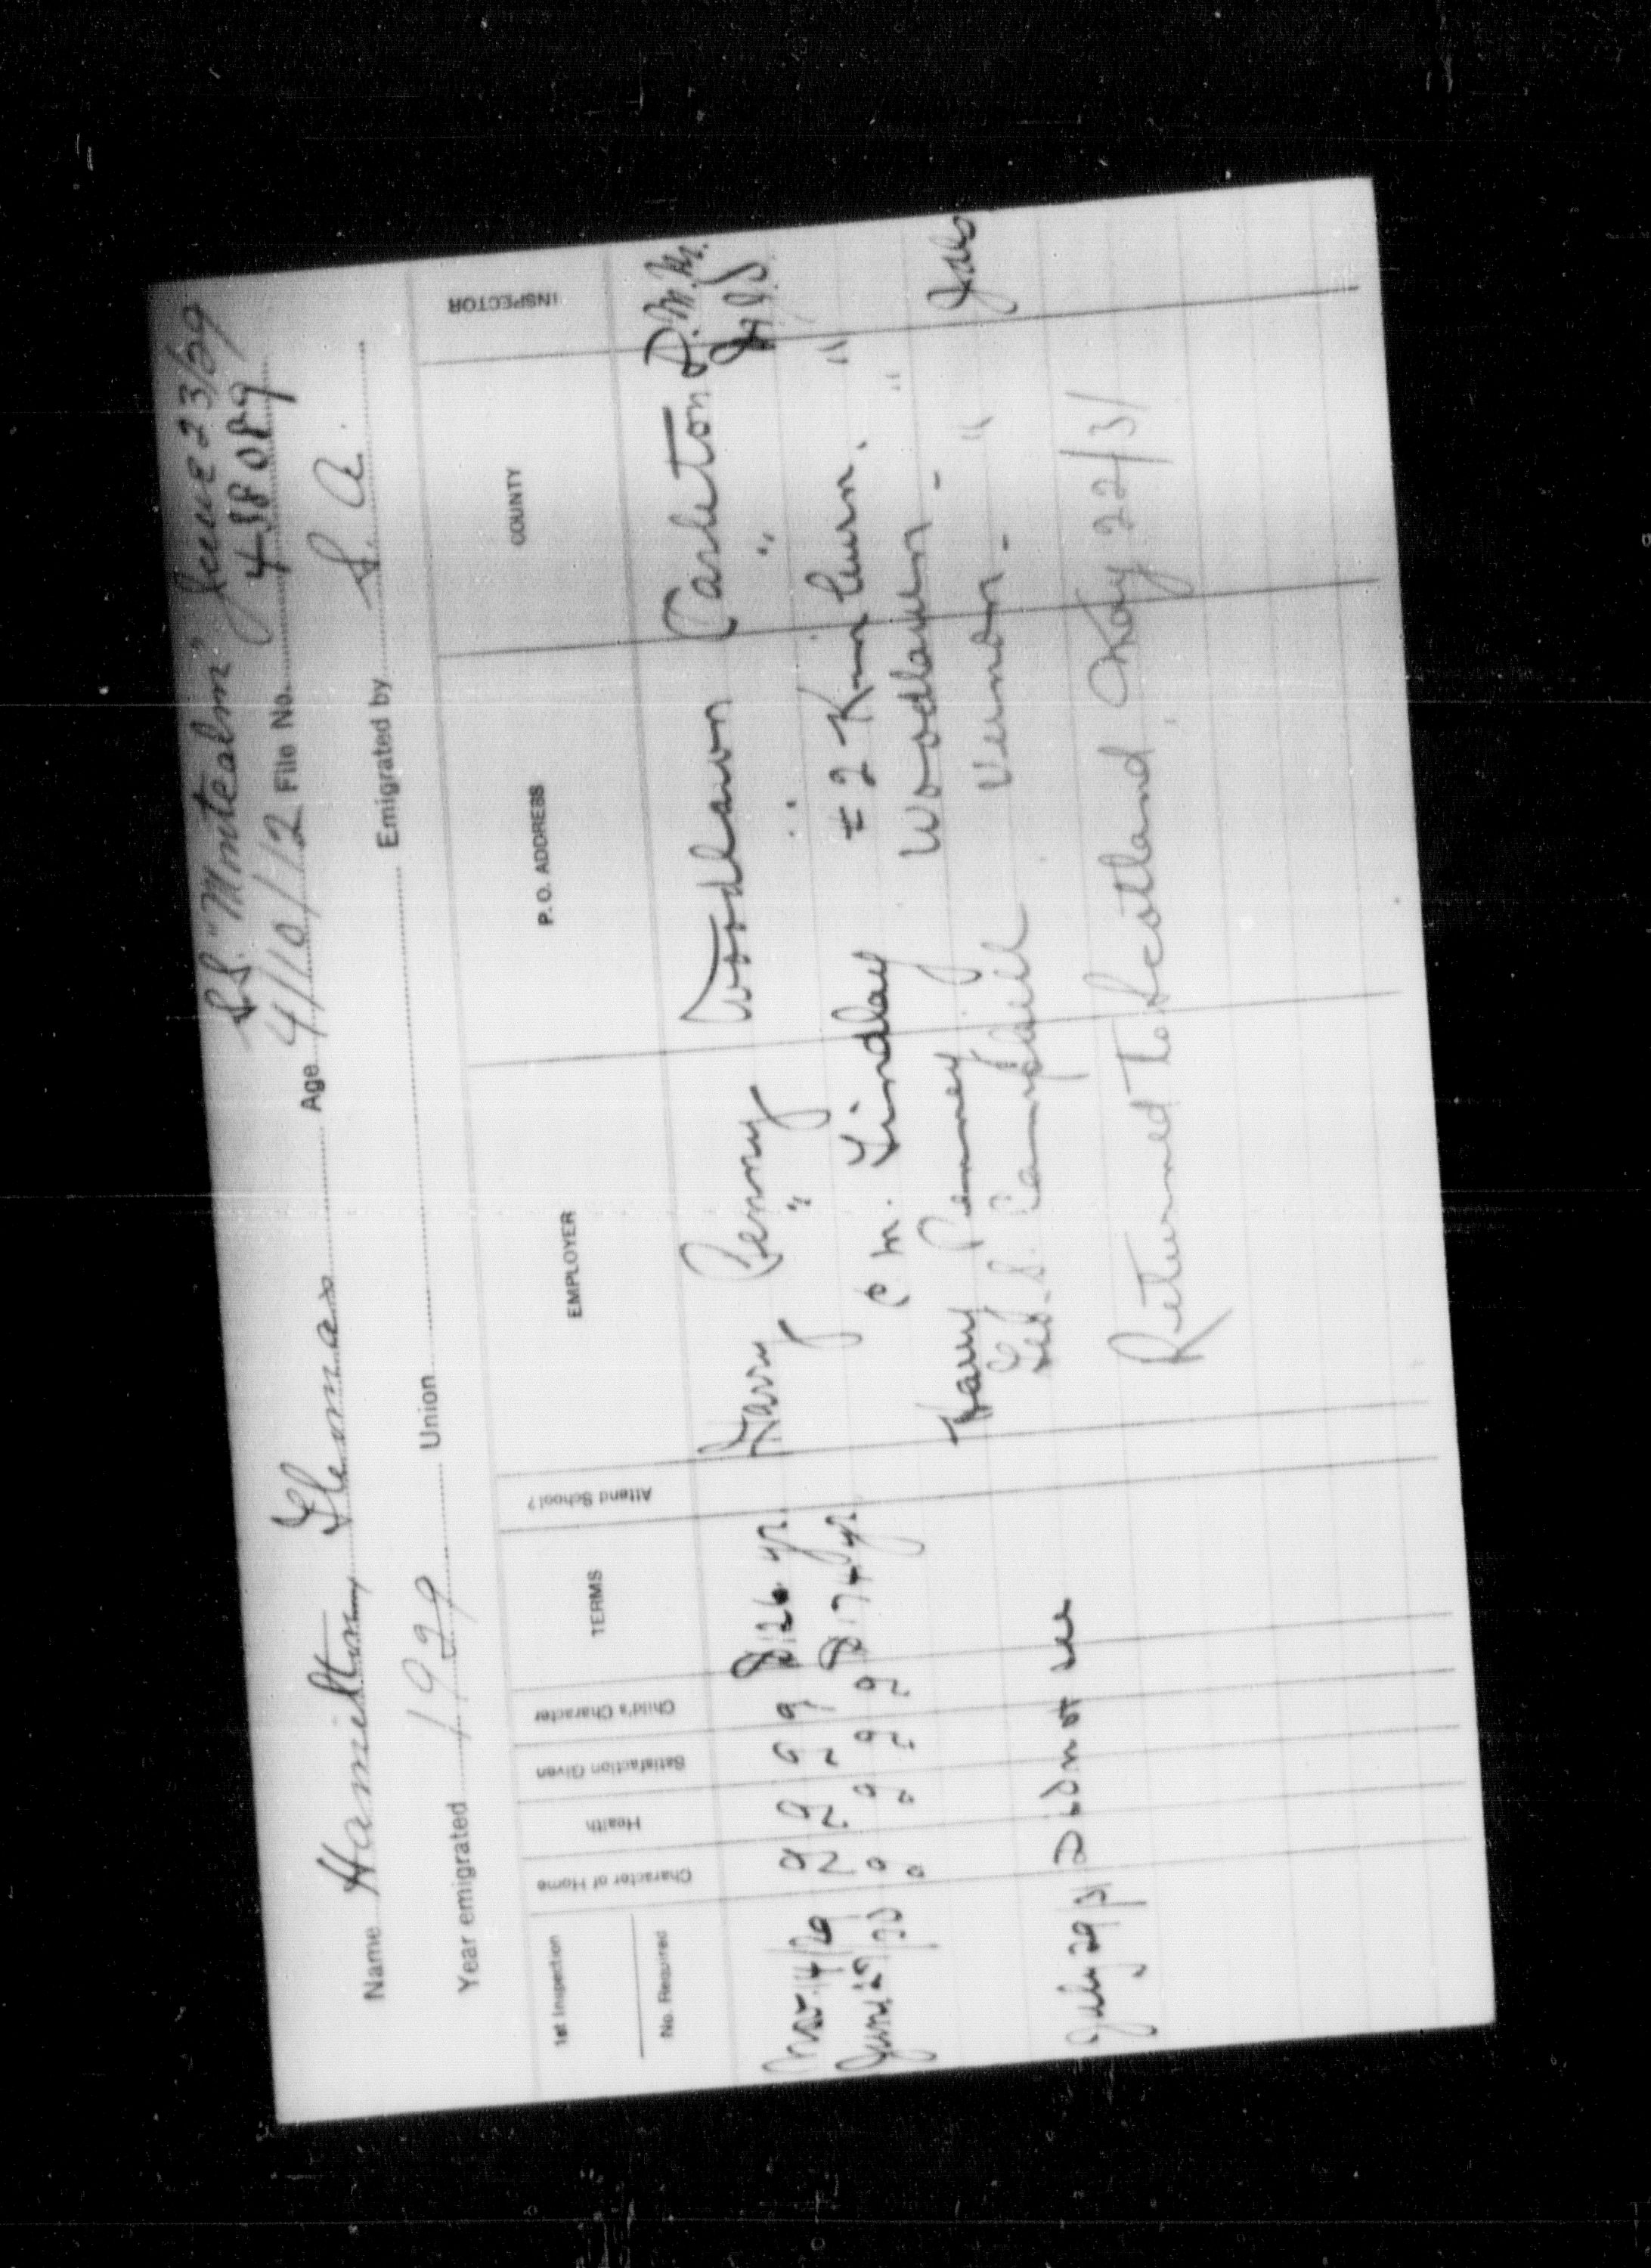 S.S. "Montcalm" June 23/29
Name Hamilton, Age 4/10/12 File No. 
Year emigrated 1929 Union Emigrated by S. A.
1st Inspection
No. Required
Character of Home Health Satisfaction Given Child's Character TERMS Attend School? EMPLOYER P. O. ADDRESS COUNTY INSPECTOR
Nov. 14/29 g g g g $126 yr. Harry Penny Woodlawn Carleton
" " "
$174 yr. C. M. Lindsay #2 Kinburn. "
Harry Penney Woodlawn - "
July 29/31 Did not see Geo. S. Campbell Vernon - "
Returned to Scotland May 22/31